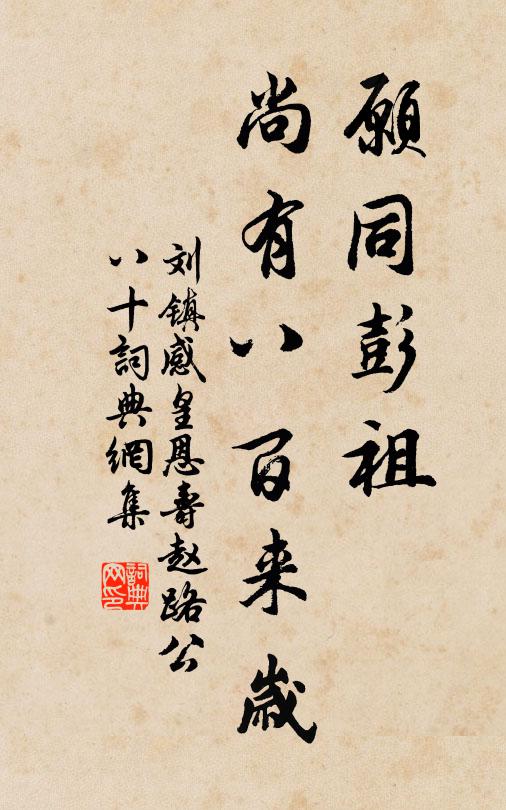 願同彭祖
尚有八百来歲
刘镇感皇恩壽赵路公
八十詞典網集
詞典
网印